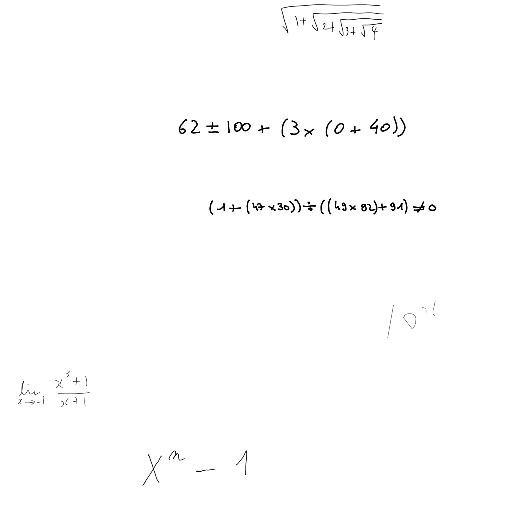 \sqrt{1+\sqrt{2+\sqrt{3+\sqrt{4}}}}
62 ± 100 + (3 × (0 + 40))
(1 + (47 × 30)) ÷ ((49 × 82) + 91) ≠ 0
\lim_{x \to -1} \frac{x^3+1}{x+1}
x^n - 1